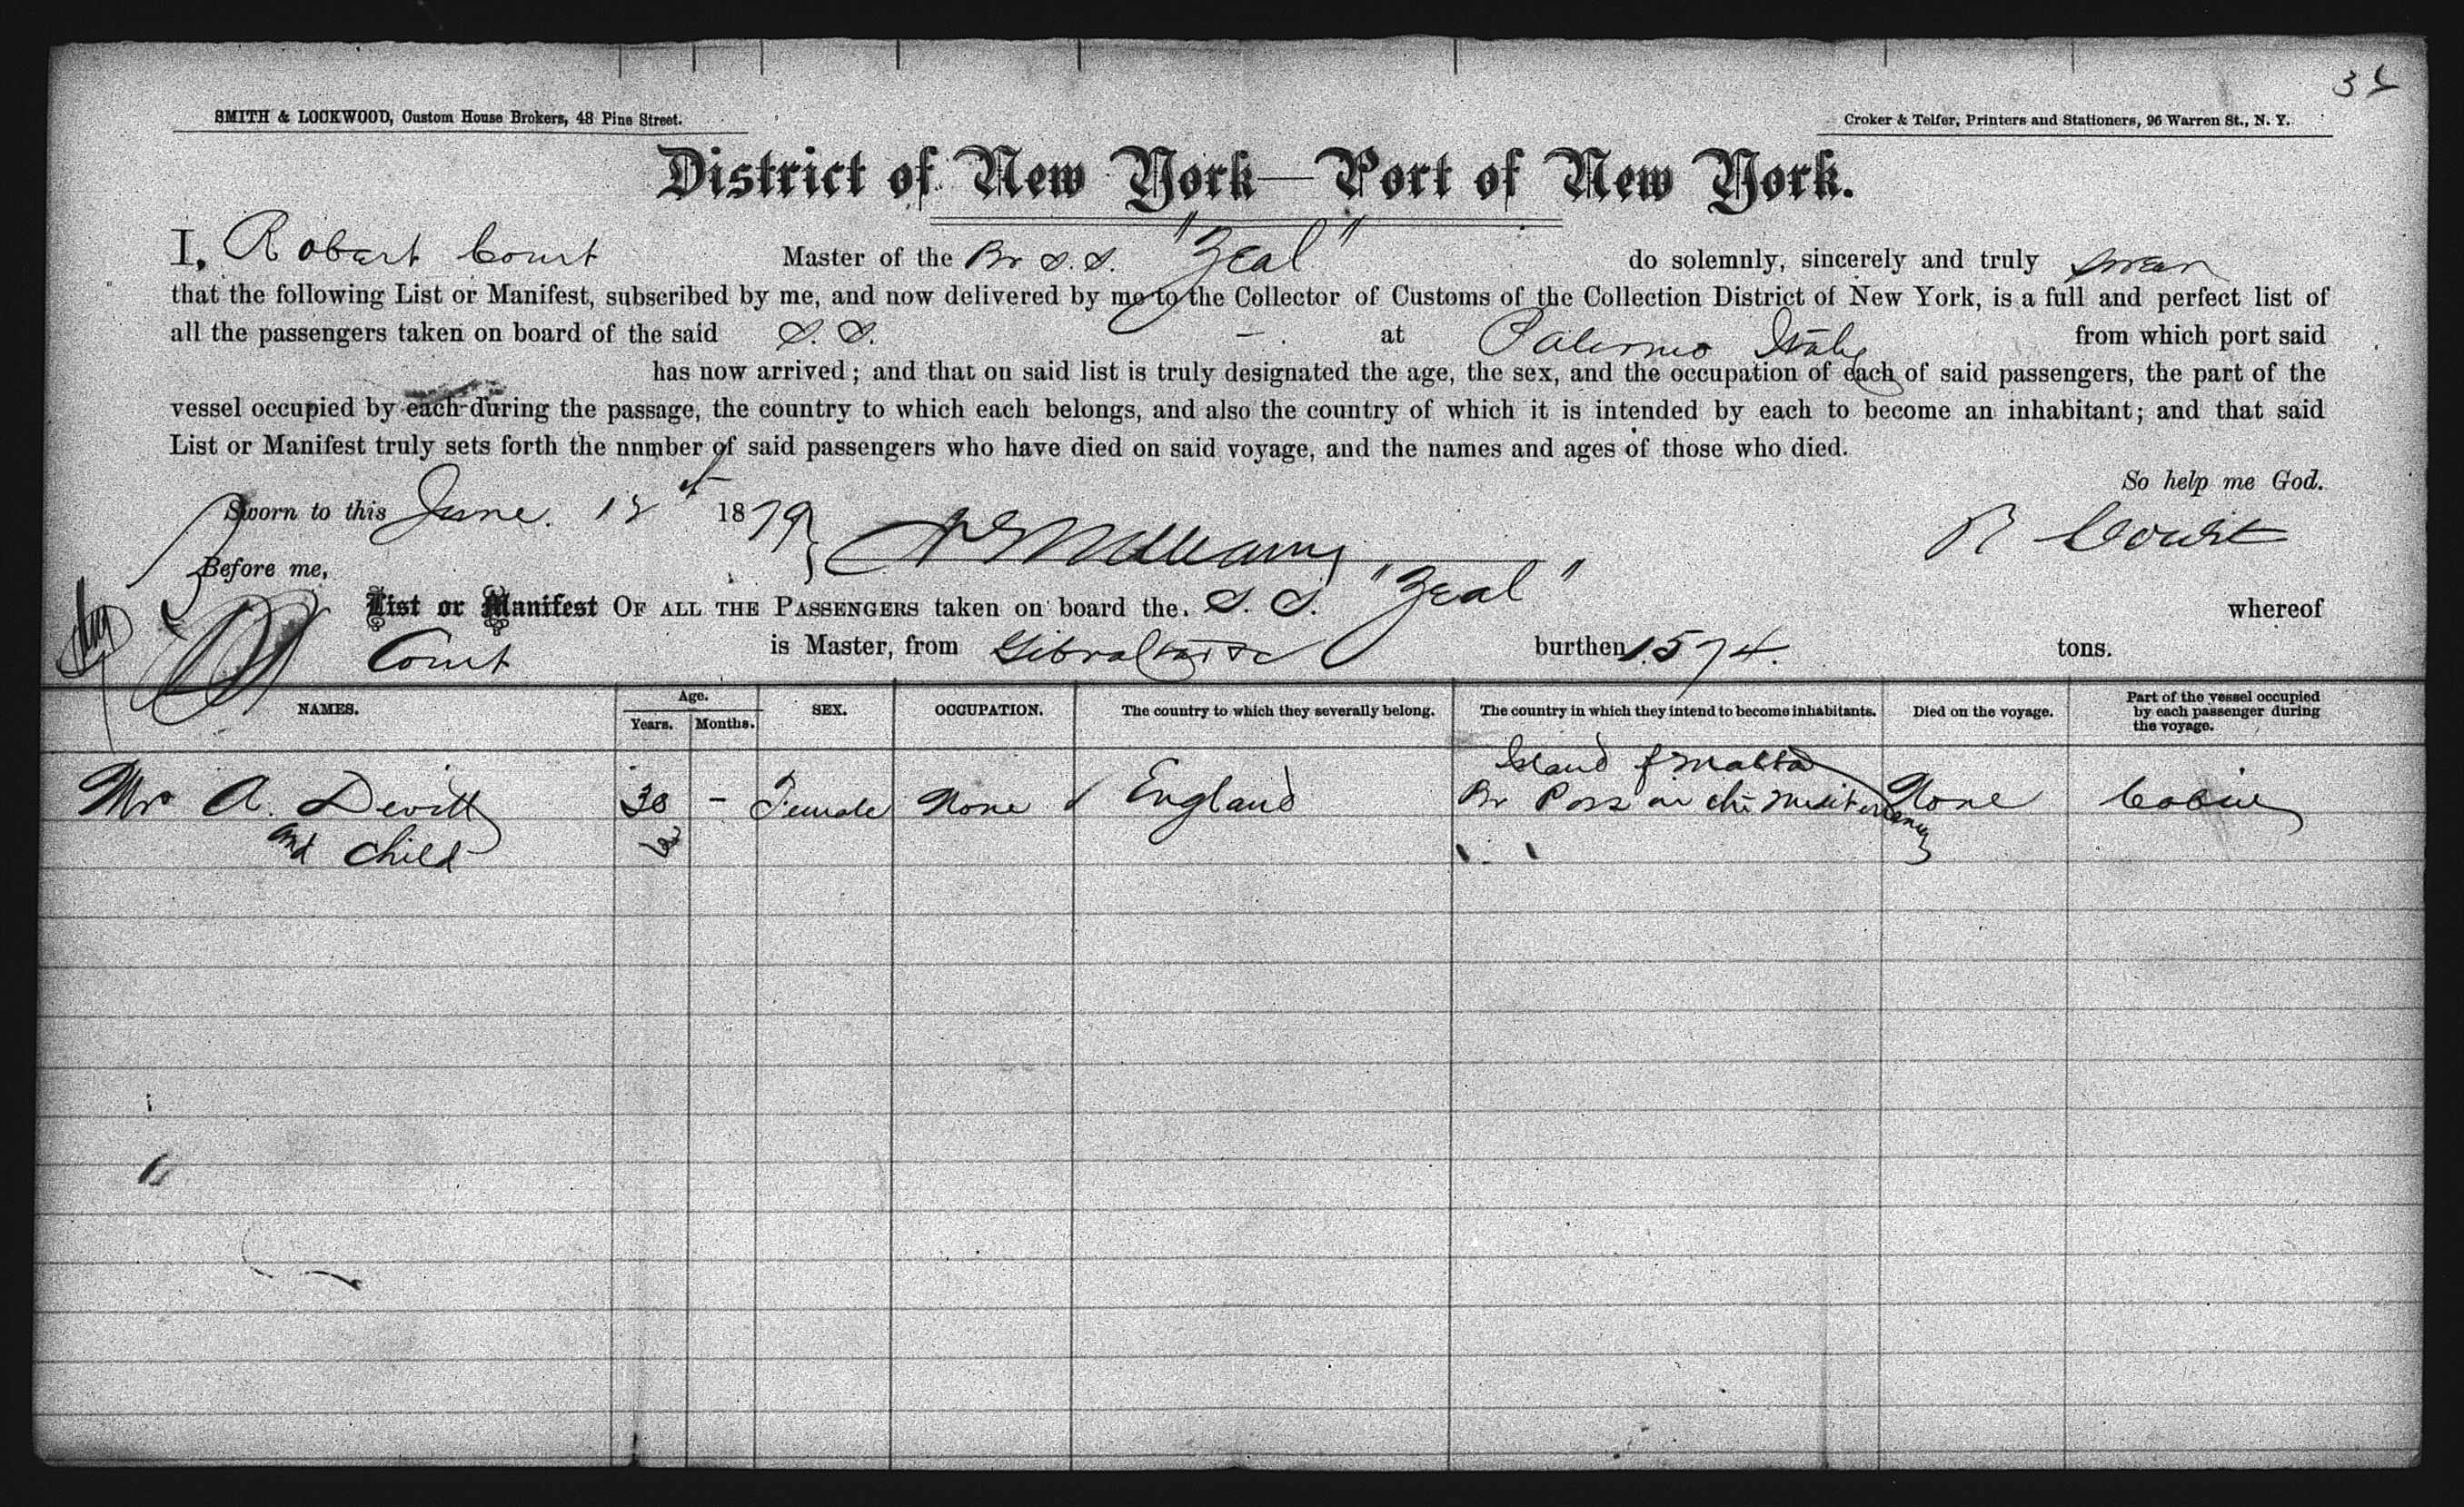 32
SMITH & LOCKWOOD, Custom House Brokers, 48 Pine Street.
Croker & Telfer, Printers and Stationers, 96 Warren St., N. Y.
District of New York—Port of New York.
I, Robert Court Master of the Br S.S. "Zeal" do solemnly, sincerely and truly swear
that the following List or Manifest, subscribed by me, and now delivered by me to the Collector of Customs of the Collection District of New York, is a full and perfect list of
all the passengers taken on board of the said S.S. - at Palermo Italy from which port said
has now arrived; and that on said list is truly designated the age, the sex, and the occupation of each of said passengers, the part of the
vessel occupied by each during the passage, the country to which each belongs, and also the country of which it is intended by each to become an inhabitant; and that said
List or Manifest truly sets forth the number of said passengers who have died on said voyage, and the names and ages of those who died.
So help me God.
Sworn to this June. 12 1879 R Court
Before me,
List or Manifest OF ALL THE PASSENGERS taken on board the S.S. "Zeal" whereof
Court is Master, from Gibraltar &c burthen 1574. tons.
NAMES. Age. Years. Months. SEX. OCCUPATION. The country to which they severally belong. The country in which they intend to become inhabitants. Died on the voyage. Part of the vessel occupied by each passenger during the voyage.
Island of Malta
Mrs A. Devitt 30 - Female None England Br Poss in the Mediterranean None Cabin
and child